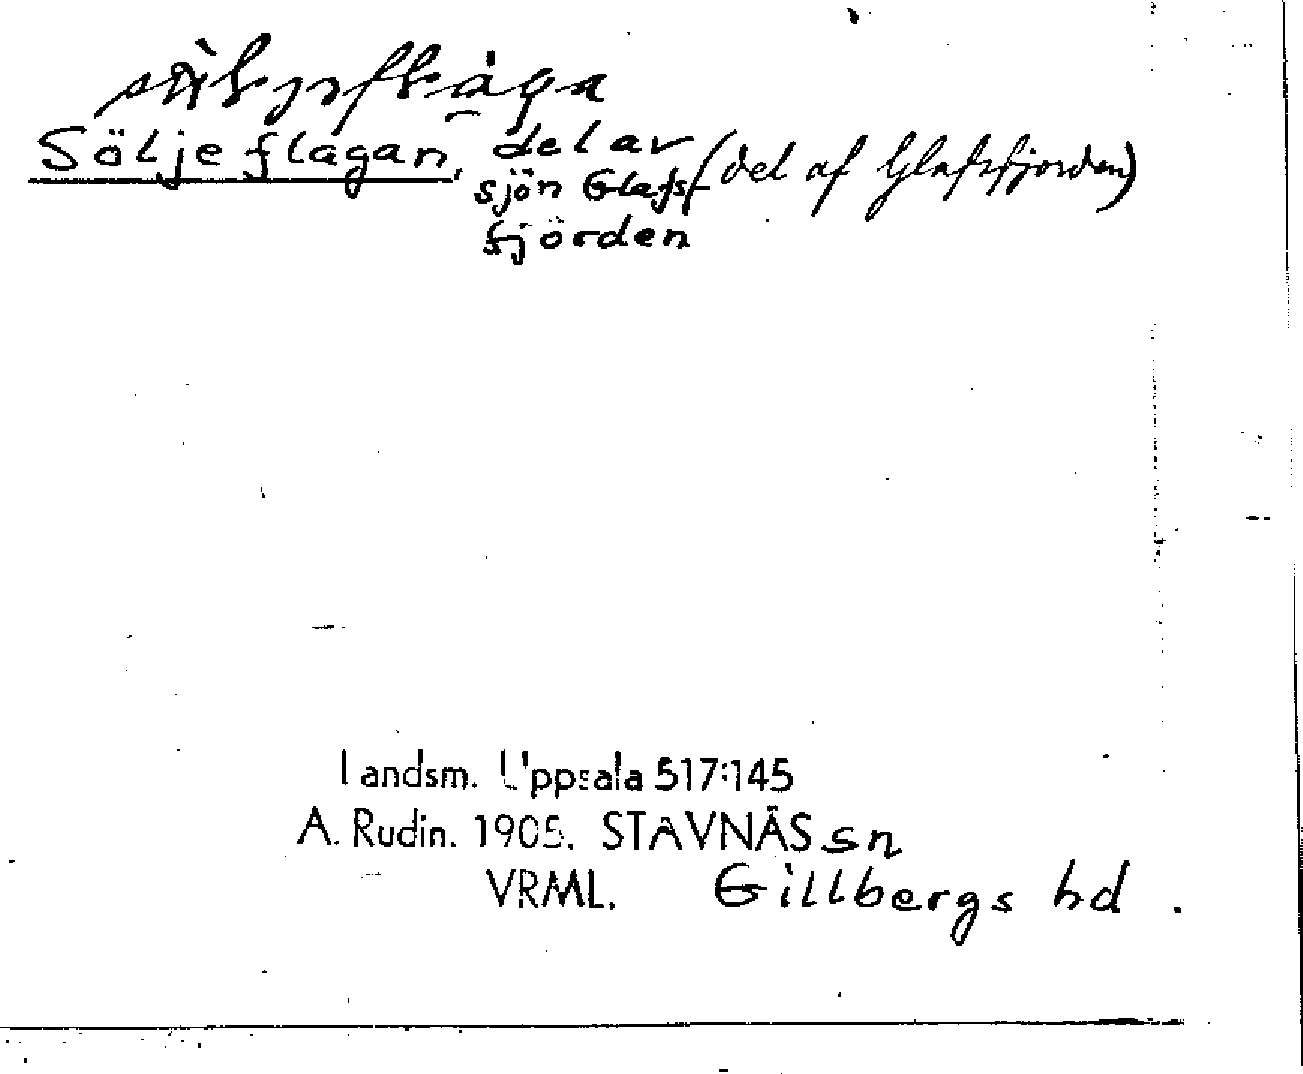 Söljeflagan, del av (del af Glafsfjorden)
sjön Glafs-
fjörden
Landsm. Uppsala 517:145
A. Rudin. 1905. STAVNÄS sn
VRML. Gillbergs hd.